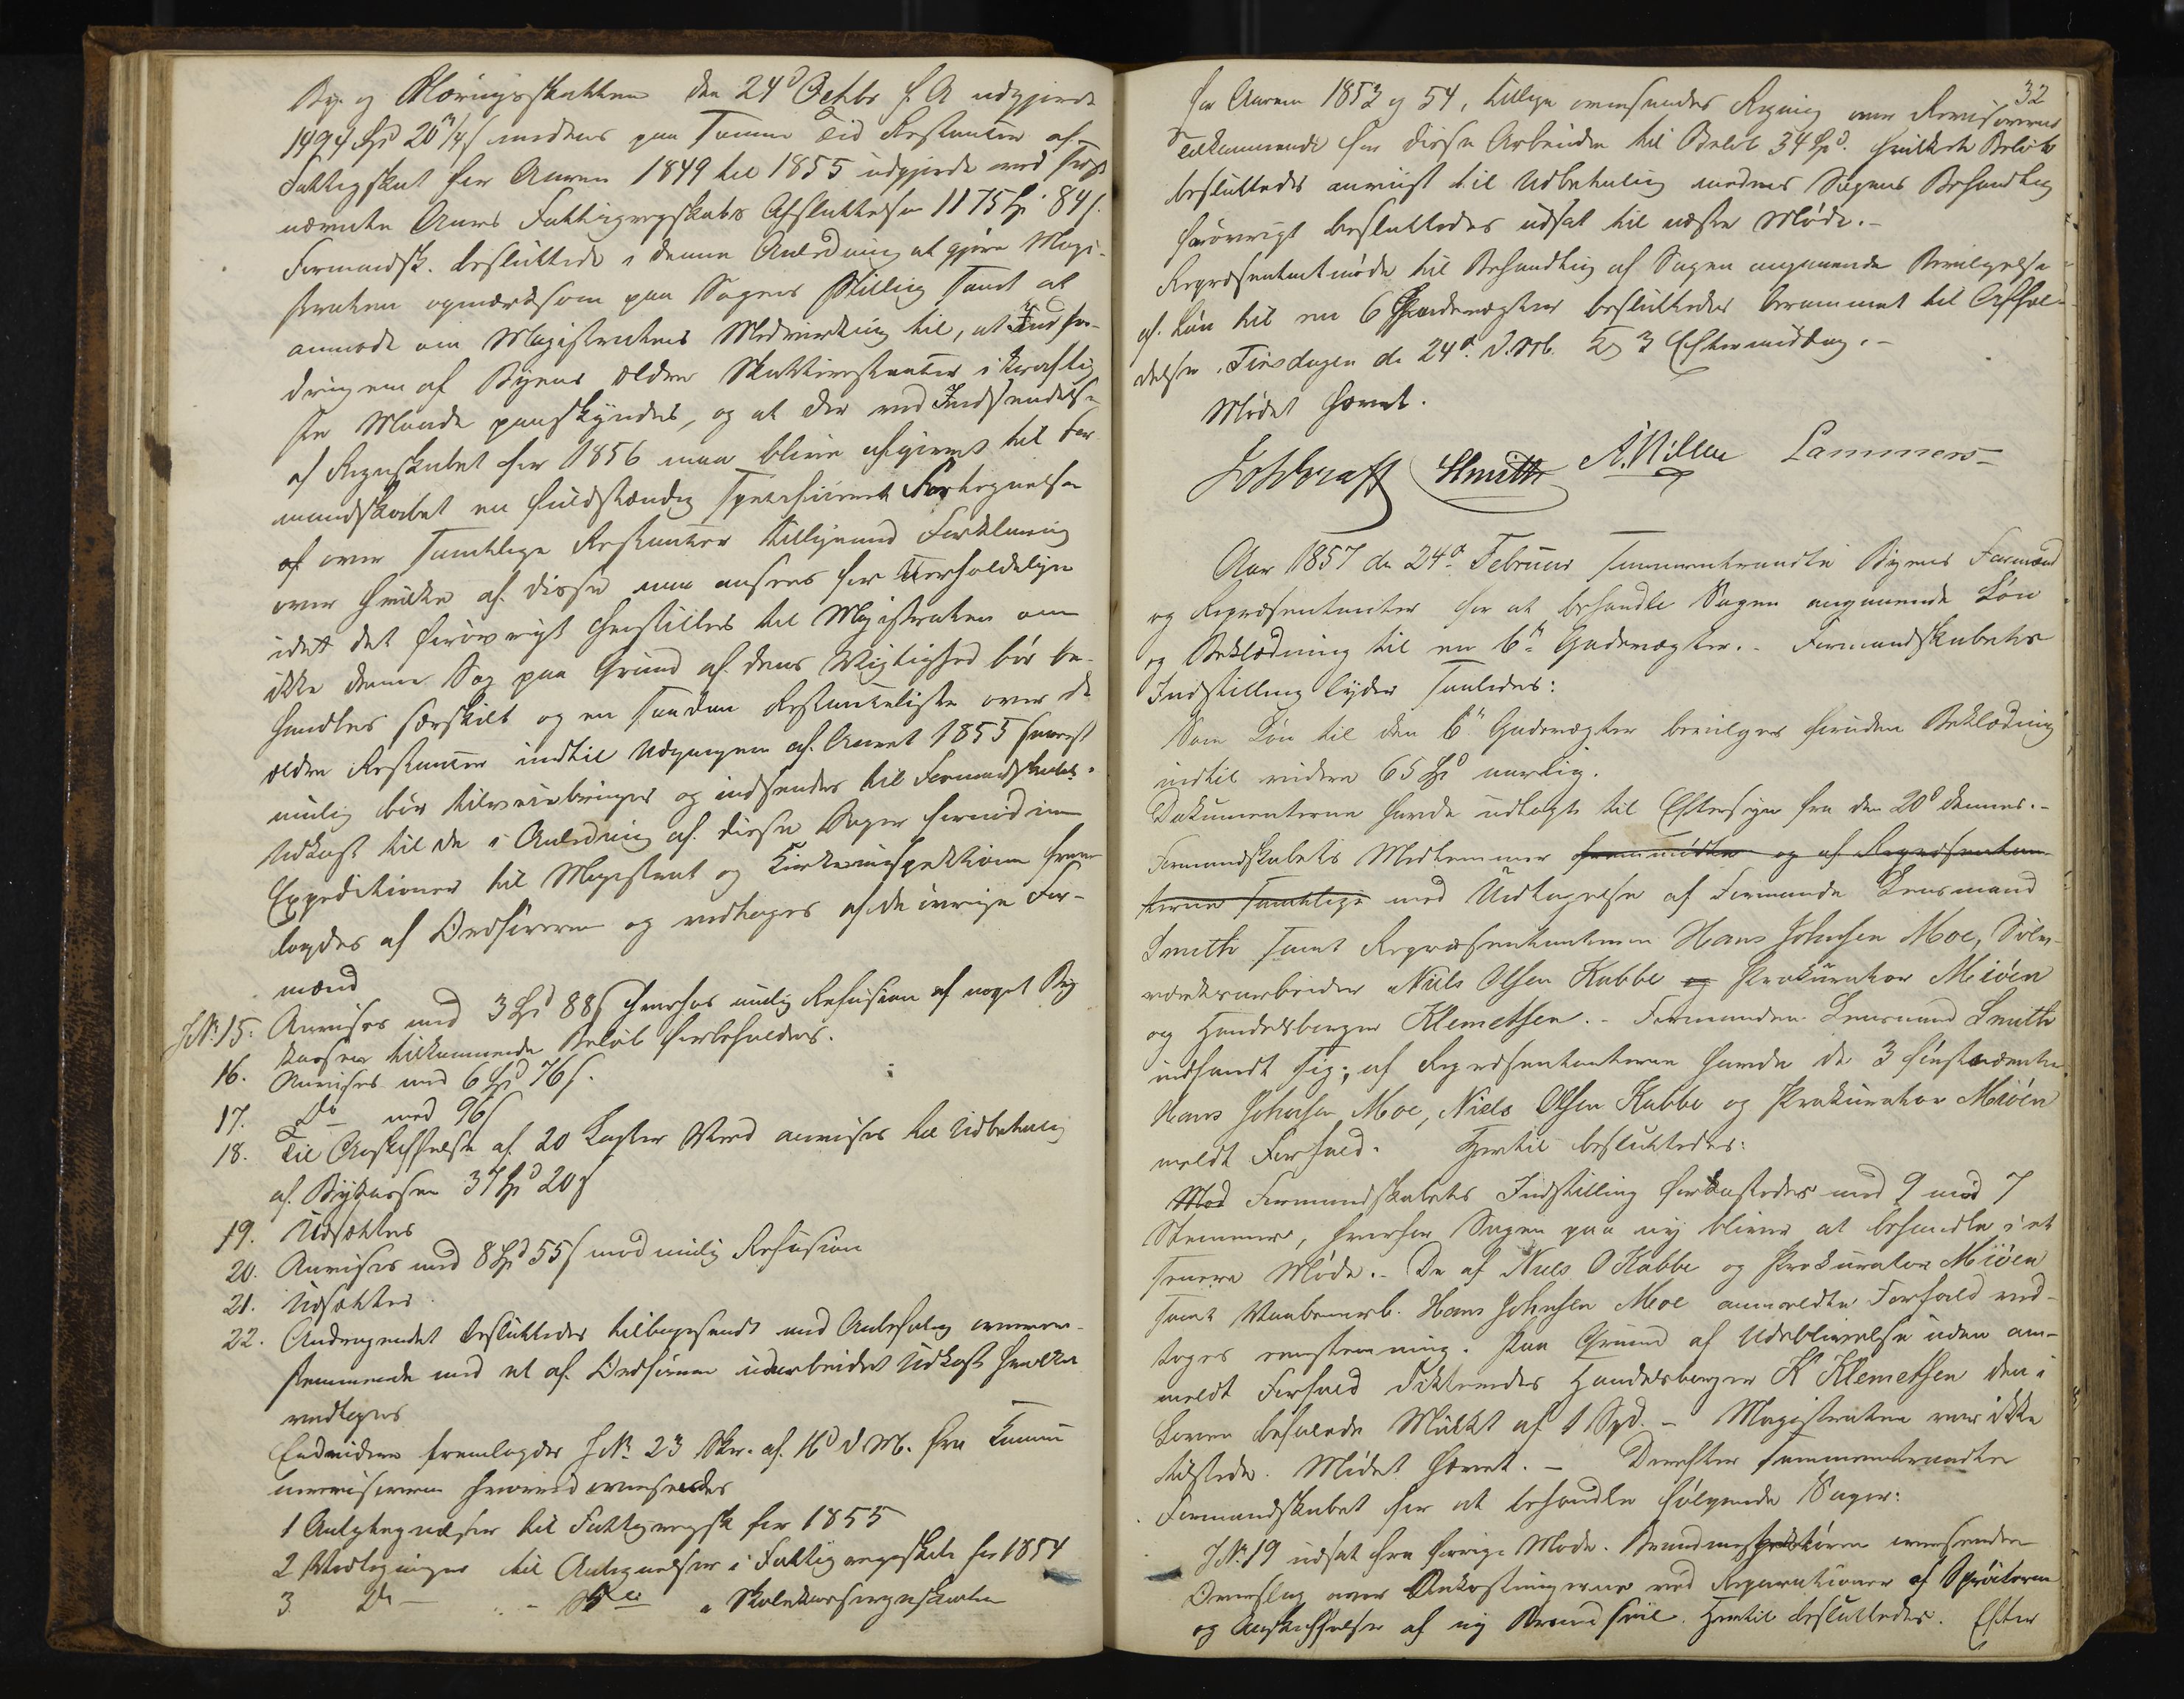 By- og Næringsskatten den 24d Octbr f. A. udgjorde
1494 Spd 20 ¾ s medens paa samme Tid Restantse af
Fattigskat for Aarene 1849 til 1855 udgjorde ved sidst
nævnte Aars Fattigregnskabs Afsluttelse 1175 Sp 84 s.
Formandsk. besluttede i denne Anledning at gjøre Magi-
straten opmærksom paa Sagens Stilling samt at
anmode om Magistratens Medvirkning til, at Indfor-
dringen af Byens ældre Skatterestantser i kraftig-
ste Maade paaskyndes, og at der ved Indsendelse
af Regnskabet for 1856 maa blive afgivet til For-
mandskabet en fuldstændig specificeret Fortegnelse
over samtlige Restantser tilligemed Forklaring
over hvilke af disse maa ansees for uerholdelige
idet det forøvrigt henstilles til Magistraten om
ikke denne Sag paa Grund af dens Vigtighed bør be-
handles særskilt og en saadan Restanseliste over de
ældre Restantser indtil Udgangen af Aaret 1855 snarest
mulig bør tilveiebringes og indsendes til Formandskabet.
Udkast til de i Anledning af disse Sager fornødne
Expeditioner til Magistrat og Kirkeinspektionen frem-
lagdes af Ordføreren og vedtoges af de øvrige For-
mænd
JN. 15. Anvises med 3 Spd 88 s hvorhos mulig Refusion af noget By
kassen tilkommende Beløb forbeholdes.
16. Anvises med 6 Spd 76 s.
17. Do med 96 s
18. Til Anskaffelse af 20 Laster Ved anvises til Udbetaling
af Bykassen 37 Spd 20 s
19. Udsættes
20. Anvises med 8 Spd 55 s mod mulig Refusion
21. Udsættes.
22. Andragendet besluttedes tilbagesendt med Anbefaling overens-
stemmende med et af Ordføreren udarbeidet Udkast hvilket
vedtoges
Endvidere fremlagdes JN. 23 Skr. af 16d d. M. fra Kommu
nerevisoren hvorved oversendes
1 Antegnelser til Fattigregnsk for 1855
2 Vedtegninger til Antegnelser i Fattigregnskab for 1854
3. Do - - " Skolekasseregnskabet
32
for Aarene 1853 og 54, tillige oversendes Regning over Revisorens
Tilkommende for disse Arbeider til Beløb 34 Spd. hvilket Beløb
besluttedes anviist til Udbetaling medens Sagens Behandling
forøvrigt besluttedes udsat til næste Møde.-
Repræsentantmøde til Behandling af Sagen angaaende Bevilgelse
af Løn til en 6 Gadevægter besluttedes berammet til Afhol-
delse Tirsdagen de 24d. d. M. Kl 3 Eftermiddag.-
Mødet hævet.
Smith A. Nilsen Lammers
Aar 1857 de 24d Februar sammentraadte Byens Formænd
og Repræsentanter for at behandle Sagen angaaende Løn
og Beklædning til en 6te Gadevægter.- Formandskabets
Indstilling lyder saaledes:
Som Løn til den 6te Gadevægter bevilges foruden Beklædning
indtil videre 65 Spd aarlig.
Dokumenterne havde udlagt til Eftersyn fra den 20d dennes.-
Formandskabets Medlemmer fremmødte og af Repræsentan-
terne samtlige med Undtagelse af Formand Lensmand
Smith samt Repræsentanterne Hans Johnsen Moe, Sølv-
værksarbeider Niels Olsen Kabbe og Prokurator Miøen
og Handelsborger Klemetsen.- Formanden Lensmand Smith
indfandt sig; af Repræsentanterne havde de 3 førstnævnte
Hans Johnsen Moe, Niels Olsen Kabbe og Prokurator Miøen
meldt Forfald. Hertil besluttedes:
Mod Formandskabets Indstilling forkastedes med 9 mod 7
Stemmer, hvorfor Sagen paa ny bliver at behandle i et
senere Møde.- De af Niels O Kabbe og Prokurator Miöen
samt Vaabenarb. Hans Johnsen Moe anmeldte Forfald ved-
toges eenstemmig. Paa Grund af Udeblivelse uden an-
meldt Forfald dikteredes Handelsborger K Klemetsen den i
Loven befalede Mulkt af 1 Spd.- Magistraten var ikke
tilstede. Mødet hævet.- Derefter sammentraadte
Formandskabet for at behandle følgende Sager:
JN. 19 udsat fra forrige Møde. oversender
Overslag over Omkostningerne ved Reparationer af Sprøiterne
og Anskaffelse af ny Brandseil. Hertil besluttedes. Efter